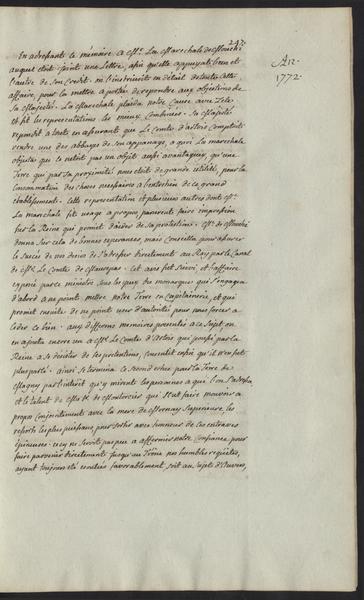 247.
An
1772.
En adressants ce mémoire a Mde La Mareschale de Mouchi
auquel etoit jointe une Lettre, afin qu'elle appuyat le bien et
de son Credit. on l'instruisit en détail de toute cette
affaire, pour la mettre a portée de repondre aux objections de
sa Majesté. La Mareschale plaida notre Cause avec Zele
et fit les representations les mieux combinées. Sa Majesté
repondit a tout en assurant que Le Comte d'artois Comptoit
rentre une des abbayes de son appanage, a quoi La mareschale
objecta que ce n'etoit pas un objet aussi avantageux qu'une
Terre qui par sa proximité nous etoit de grande utilité, pour la
consommation des choses necessaires a l'entretien de ce grand
établissement. Cette representation et plusieurs autres dont Mde
La mareschale fit usage a propos, parurent faire impression
sur la Reine qui promit d'aider de sa protection. Mde de Mouchi
donna sur cela de bonnes esperances, mais Conseilla pour assurer
le succés de nos desirs de s'adresser directement au Roy par le Canal
de Mr Le Comte de Maurepas. cet avis fut suivi, et l'affaire
exposée par ce ministre sous les yeux du monarque qui s'engagea
d'abord a ne point mettre notre Terre en Capitainerie, et qui
promit ensuite de ne point user d'autorité pour nous forcer a
ceder ce bien. aux differens memoires presentés a ce Sujet, on
en ajouta encore un a Mr Le Comte d'Artois qui pressé par la
Reine a se desister de ses pretentions, consentit enfin qu'il n'en fut
plus parlé. ainsi se termina ce second echec pour la Terre de
Magny par l'interet qu'y mirent les personnes a qui l'on s'adressa,
et le talent de qui sçut faire mouvoir a
propos conjointement avec la mere de Mornay Superieure, les
ressorts les plus puissans pour sortir avec honneur de ces entraves
épineuses. ceci ne servit pas peu a affermir notre Confiance, pour
faire parvenir directement jusqu'au Trône nos humbles requêtes,
ayant toujours eté ecoutées favorablement soit au sujet d'